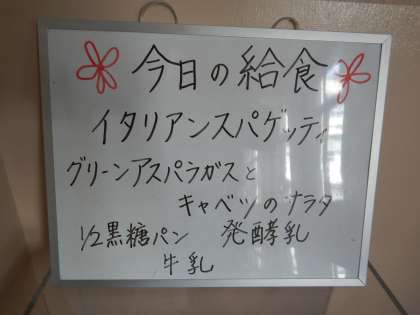 今日の給食
イタリアンスパゲッティ
グリーンアスパラガスと
キャベツのサラダ
1/2黒糖パン 発酵乳
牛乳